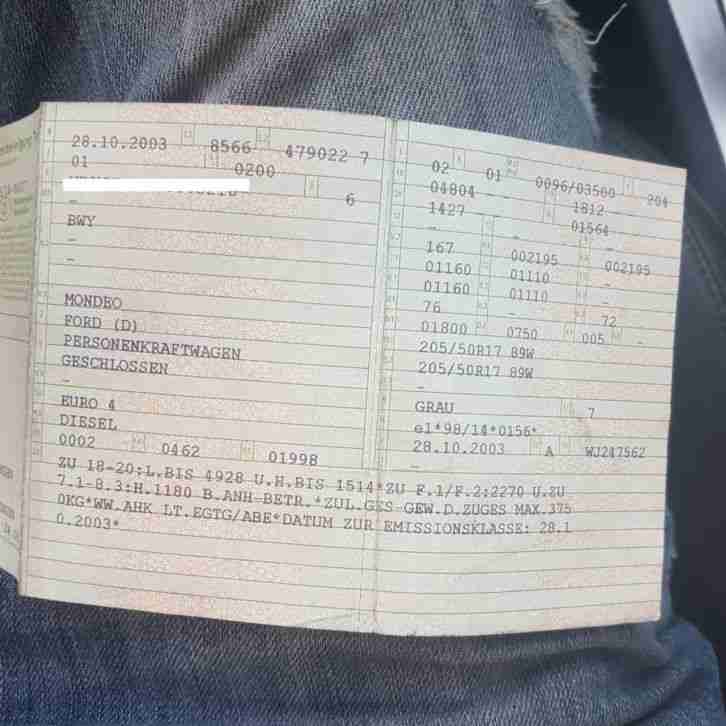 28.10.2003 8566 479022 7
01 0200
6
-
BWY
-
-
MONDEO
FORD (D)
PERSONENKRAFTWAGEN
GESCHLOSSEN
-
EURO 4
DIESEL
0002 0462 01998
02 01 0096/03500 204
04804 - 1812 -
1427 - 01564
- - -
167 002195 002195
01160 01110 -
01160 01110 -
76 - 72
01800 0750 005 -
205/50R17 89W
205/50R17 89W
-
GRAU 7
e1*98/14*0156*
28.10.2003 A WJ247562
-
ZU 18-20:L.BIS 4928 U.H.BIS 1514*ZU F.1/F.2:2270 U.ZU
7.1-8.3:H.1180 B.ANH-BETR.*ZUL.GES GEW.D.ZUGES MAX.375
0KG*WW.AHK LT.EGTG/ABE*DATUM ZUR EMISSIONSKLASSE: 28.1
0.2003*